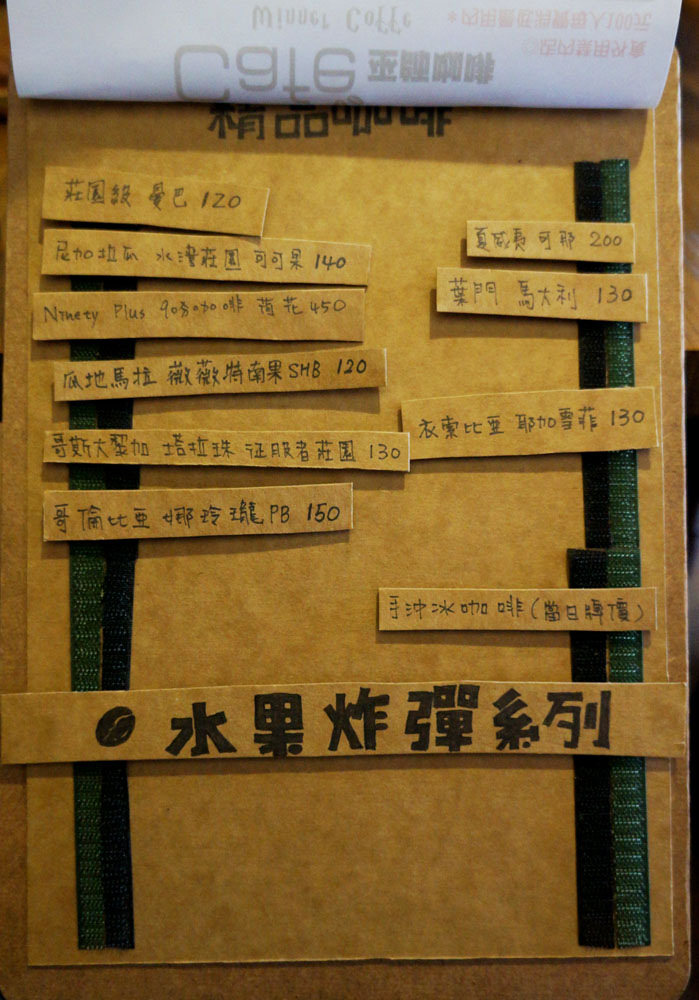 Winner Coffe
Cafe 巫師咖啡
精品咖啡
莊園級 曼巴 120
尼加拉瓜 水灣莊園 可可果 140
Ninety Plus 90分咖啡 荷花 450
瓜地馬拉 薇薇特南果SHB 120
哥斯大黎加 塔拉珠 征服者莊園 130
哥倫比亞 娜玲瓏PB 150
夏威夷 可那 200
葉門 馬大利 130
衣索比亞 耶加雪菲 130
手沖冰咖啡(當日牌價)
水果炸彈系列